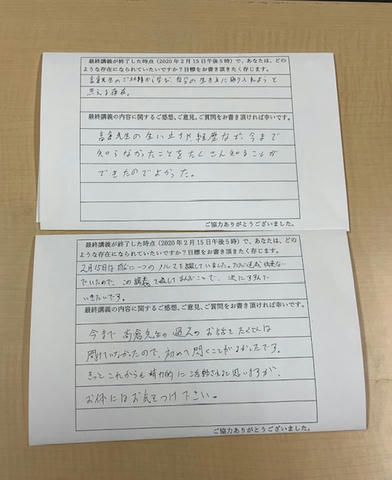 最終講義が終了した時点（2020年2月15日午後5時）で、あなたは、どの
ような存在になられていたいですか？目標をお書き頂きたく存じます。
思える存在。
最終講義の内容に関するご感想、ご意見、ご質問をお書き頂ければ幸いです。
高倉先生の生い立ちや経歴など、今まで
知らなかったことをたくさん知ることが
できたのでよかった。
ご協力ありがとうございました。
最終講義が終了した時点（2020年2月15日午後5時）で、あなたは、どの
ような存在になられていたいですか？目標をお書き頂きたく存じます。
2月15日は
いきたいです。
最終講義の内容に関するご感想、ご意見、ご質問をお書き頂ければ幸いです。
今まで高倉先生の過去のお話をたくさんは
聞けていなかったので、初めて聞くことが多かったです。
きっとこれからも精力的に活動されると思いますが、
お体にはお気をつけ下さい。
ご協力ありがとうございました。